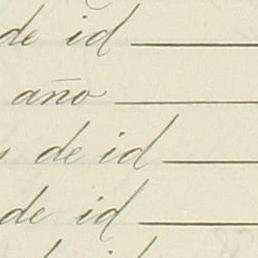 de id
año
de id
de id